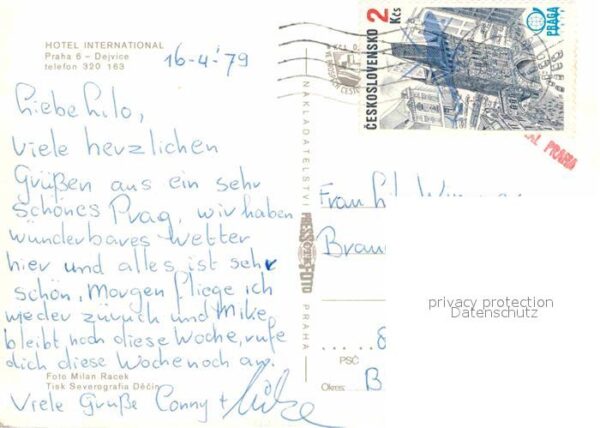 HOTEL INTERNATIONAL
Praha 6 - Dejvice
telefon 320 163
16-4-'79
Liebe Lilo,
Viele herzlichen
Grüßen aus ein sehr
schönes Prag, wir haben
wünderbares wetter
hier und alles ist sehr
schön, Morgen fliege ich
wieder zürück und Mike
bleibt noch diese Woche, rufe
dich diese Woche noch an.
Foto Milan Racek
Tisk Severografia Děčín
Viele Grüße Conny +
NAKLADATELSTVÍ PRESSFOTO PRAHA
ČESKOSLOVENSKO 2 Kčs
PRAGA
PRAHA
Frau
Brau
8
PSČ
Okres: B
privacy protection
Datenschutz